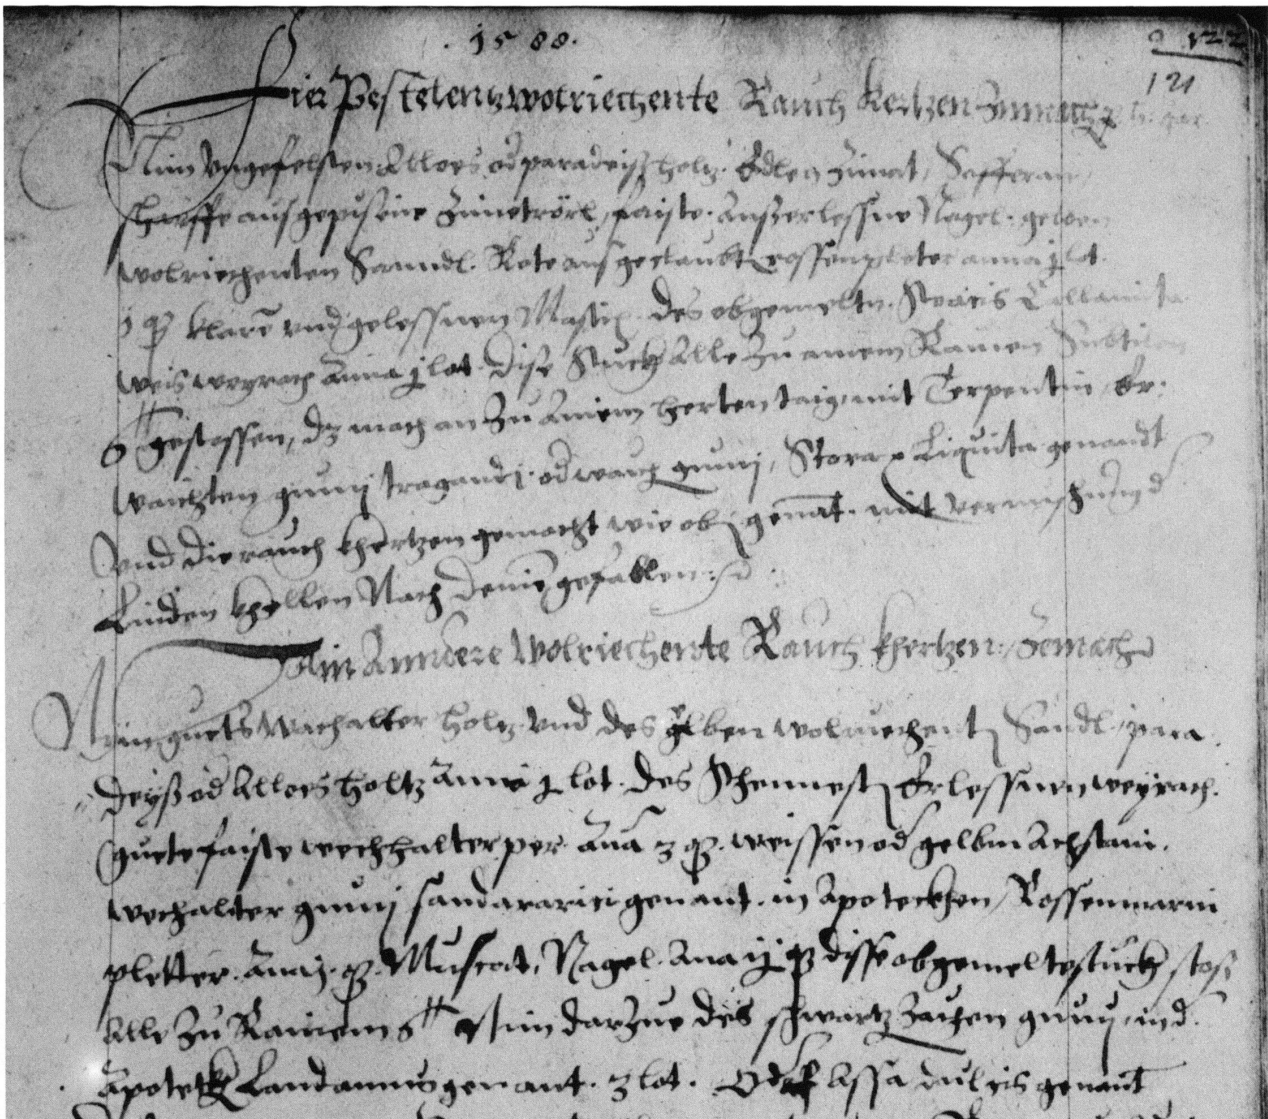 1588.
122
121
Fier Pestelentz wolriechente Rauch Kertzen Zumach
Nim ungefelsten Alloes od paradeiß holtz. Edlen Zimat, Safferan,
scharffe ausgepissene Zimetrörl, faiste. Außerlessne Nagel. gelben
wolriechenten Sanndl. Rote ausgeclaubt rossenpleter anna j lot.
klare und gelessnen Mastix. des obgemeltn. Storacis Callamita
weis weyrach Anna j lot. dise Stuckh Alle zu ainem Rainen Subtilen
gestossen, dz mach an zu Ainem herten taig, mit Terpentin, Er.
waichten gumj tragandj. od wauch gumj, Storax Liquita genandt
und die rauch khertzen gemacht wie obgenat. mit vermischung d
Linden khollen Nach deine gefallen
Ain Anndere Wolriechente Rauch khertzen: Zemach
Nim guets Wachalter holtz und des gelben wolriechent Sandl. para
deyß od Alloes holtz Anna j lot. des Schennest Erlessnen weyrach.
guete faiste wechhalterper. Ana 3 q. weissen od gelbm Achstain.
wechalter gumj sandararici genant. in Apoteckhen, Rossenmarin
pletter. Ana j. q. Muscat, Nagel. Ana ij q disse obgemelte stuckh stoß
Alle zu Rainem Nim darzue des schwartz Zachen gumj, in d
Apoteckh Landannum genant. 3 lot. Oder Assa dulcis genant